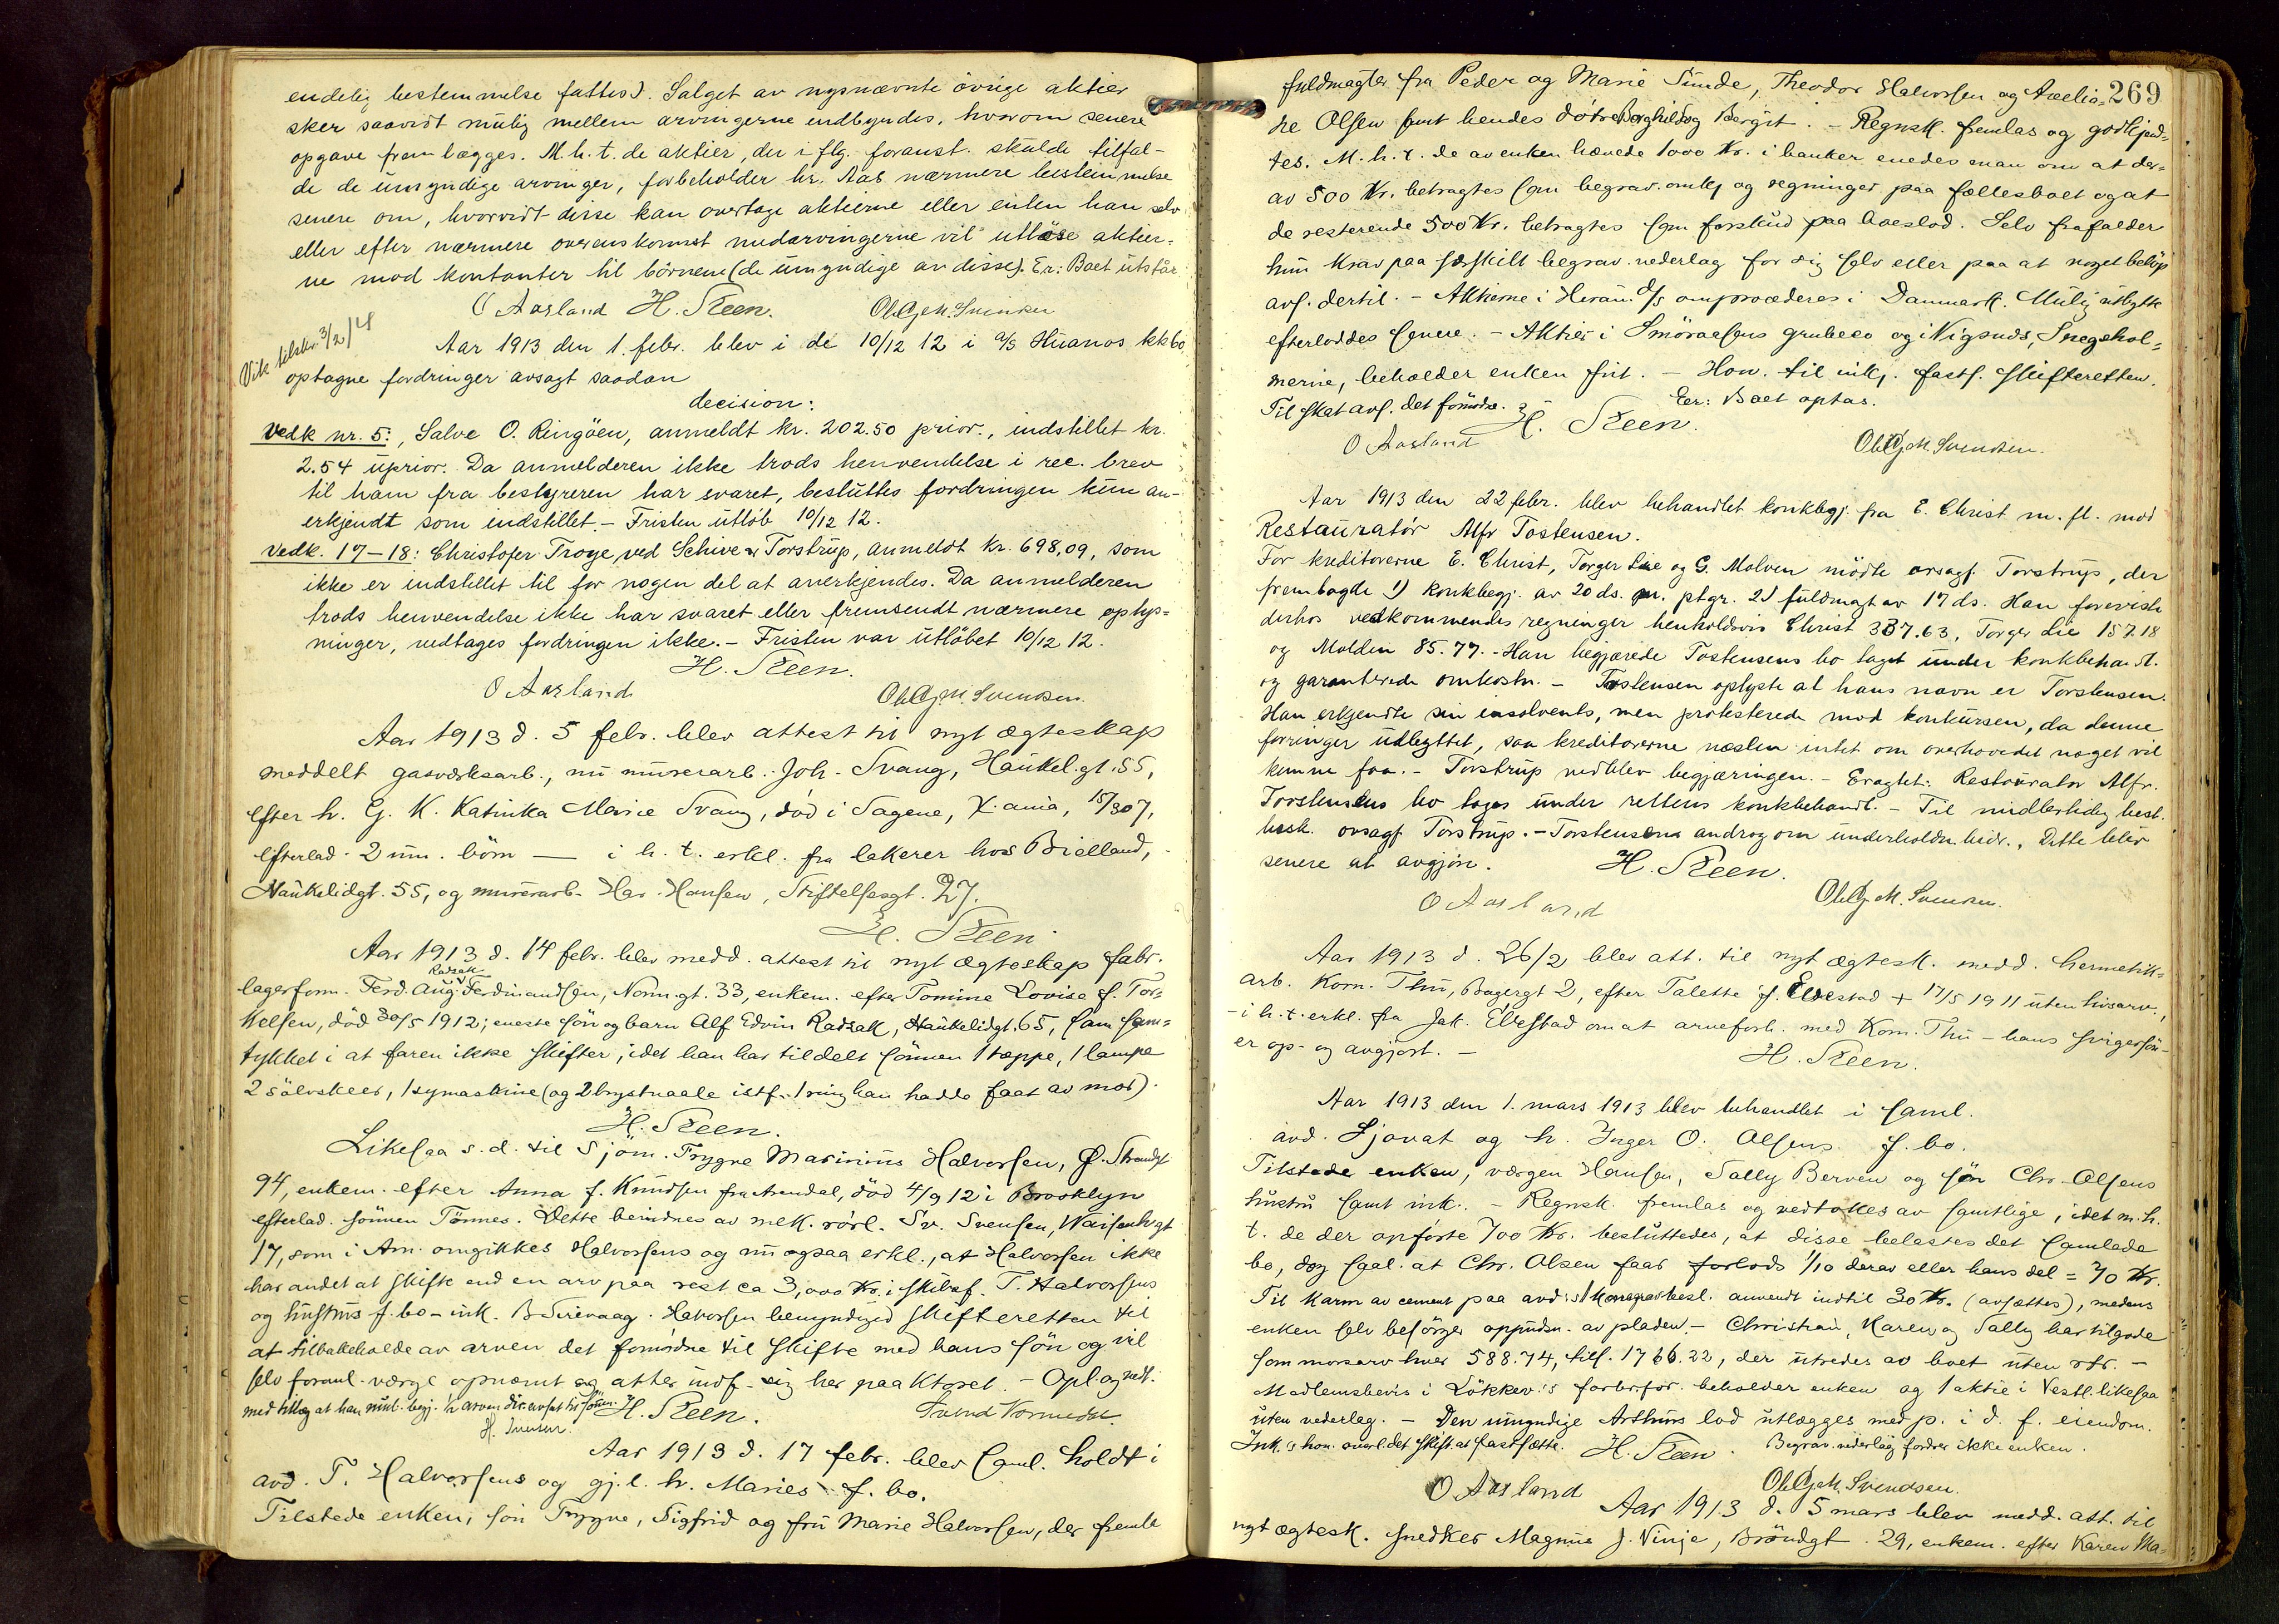 endelig bestemmelse fattes). Salget av nysnævnte övrige aktier
sker saavidt mulig mellem arvingerne indbyrdes, hvorom senere
opgave fremlægges. M.h.t. de aktier, der i flg. foranst. skulde tilfal-
de de umyndige arvinger, forbeholder hr. Aas nærmere bestemmelse
senere om, hvorvidt disse kan overtage aktierne eller enten han selv
eller efter nærmere overenskomst medarvingerne vil utlöse aktier-
ne mod kontanter til börnene (de umyndige av disse). Er: Boet utstår
O Aasland H. Steen. Ole Chr. M. Svendsen
Vik tilskr. 3/2 14
Aar 1913 den 1. febr. blev i de 10/12 12 i a/s Huanos kkbo
optagne fordringer avsagt saadan
decision:
Vedk nr. 5:, Salve O. Ringöen, anmeldt kr. 202.50 prior., indstillet kr.
2.54 uprior. Da anmelderen ikke trods henvendelse i rec. brev
til ham fra bestyreren har svaret, besluttes fordringen kun an-
erkjendt som indstillet. - Fristen utlöb 10/12 12.
Vedk. 17-18: Christofer Troye, ved Schive & Torstrup, anmeldt kr. 698,09, som
ikke er indstillet til for nogen del at anerkjendes. Da anmelderen
trods henvendelse ikke har svaret eller fremsendt nærmere oplys=
ninger, vedtages fordringen ikke. - Fristen var utlöbet 10/12 12.
H. Steen.
O Aasland Ole Chr. M. Svendsen.
Aar 1913 d. 5 febr. blev attest til nyt ægteskap
meddelt gasværksarb., nu murerarb. Joh. Svang, Haukel.gt. 55,
efter h. G. K. Katinka Marie Svang, död i Sagene, K.ania, 15/3 07,
efterlad. 2 um. börn — i h. t. erkl. fra lakerer hos Bielland,
Haukelidgt. 55, og murerarb. Har. Hansen, Stiftelsesgt. 27.
H. Steen
Aar 1913 d. 14 febr. blev medd. attest til nyt ægteskap fabr.
Radzak
lagerform. Ferd. Aug. Ferdinandsen, Norm.gt. 33, enkem. efter Tomine Lovise f. Tor-
kelsen, död 30/5 1912; eneste sön og barn Alf Edvin Radzak, Haukelidgt. 65, har sam=
tykket i at faren ikke skifter, idet han har tildelt sönnen 1 tæppe, 1 lampe
2 sölvskeer, 1 symaskine (og 2 brystnaale istf. 1 ring han hadde faat av mor).
H. Steen.
Likesaa s.d. til Sjöm. Trygve Marinius Halvorsen, Ø. Strandgt
94, enkem. efter Anna f. Knudsen fra Arendal, död 4/9 12 i Brooklyn
efterlad. sönnen Tönnes. Dette bevidnes av mek. rörl. Sv. Svensen, Waisenhsgt
17, som i Am. omgikkes Halvorsens og nu ogsaa erkl., at Halvorsen ikke
har andet at skifte end en arv paa rest ca 3,000 Kr. i skibsf. T. Halvorsens
og hustrus f. bo - ink. B Sirevaag. Halvorsen bemyndiged skifteretten til
at tilbakeholde av arven det fornödne til skifte med hans sön og vil
selv foranl. værge opnævnt og atter indf. sig her paa Ktoret. - Opl. og vedt.
med tillæg at han mul. begj. ½ arven dir. avsat til sönnen. H. Steen.
Aar 1913 d. 17 febr. blev saml. holdt i
avd. T. Halvorsens og gj.l. h. Maries f. bo.
Tilstede enken, sön Trygve, Sigfrid og fru Marie Halvorsen, der fremla
269
fuldmagter fra Peder og Marie Sunde, Theodor Halvorsen og Axelia-
ne Olsen samt hendes dötre Borghild og Bergit. - Regnsk. fremlas og godkjend-
tes. M.h.t. de av enken hævede 1000 Kr. i banker enedes man om at der-
av 500 Kr. betragtes som begrav. omk. og regninger paa fællesboet og at
de resterende 500 Kr. betragtes som forskud paa boeslod. Selv frafalder
hun krav paa særskilt begrav. vederlag for sig selv eller paa at noget belöp
avs. dertil. - Aktierne i a/s omprocederes i Danmark. Mulig utbytte
efterloddes senere. - Aktier i Smöraasens grubeco og i Vigsnes, Snegehol=
merne, beholder enken frit. - Hon. til ink. fasts. skifteretten.
Til skat avs. det fornödne. Eer: Boet optas.
H. Steen.
O Aasland Ole Chr. M. Svendsen.
Aar 1913 den 22 febr. blev behandlet konkbegj. fra E. Christ m. fl. mod
Restauratör Alfr Tostensen.
For kreditorerne E. Christ, Torger Lie og G. Molven mödte orsagf Torstrup, der
fremlagde 1) konkbegj. av 20 ds. m. ptgr. 2) fuldmagt av 17 ds. Han foreviste
derhos vedkommendes regninger henholdsvis Christ 337.63, Torger Lie 157.18
og Molden 85.77. - Han begjærede Tostensens bo taget under konkbehandl.
og garanterede omkostn. - Tostensen oplyste at hans navn er Torstensen.
Han erkjendte sin insolvents, men protesterede mod konkursen, da denne
forringer udbyttet, saa kreditorerne næsten intet om overhovedet noget vil
kunne faa. - Torstrup vedblev begjæringen. - Eragtet: Restauratör Alfr.
Torstensens bo tages under rettens konkbehandl. - Til midlertidig best.
besk. orsagf Torstrup. - Torstensen androg om underholdn. bidr., Dette blev
senere at avgjöre. H. Steen.
O Aasland Ole Chr. M. Svendsen.
Aar 1913 d. 26/2 blev att. til nyt ægtesk. medd. hermetik=
arb. Korn. Thu, Bagergt 2, efter Talette f. Elvestad + 17/5 1911 uten livsarv.,
- i h.t. erkl. fra Jak. Elvestad om at arveforh. med Korn. Thu - hans svigersön -
er op- og avgjort. - H. Steen.
Aar 1913 den 1. mars 1913 blev behandlet i saml.
avd. Sjovat og h. Inger O. Olsens f. bo.
Tilstede enken, værgen Hansen, Sally Berven og sön Chr. Olsens
hustru samt ink. - Regnsk. fremlas og vedtokes av samtlige, idet m.h.
t. de der opförte 700 Kr. besluttedes, at disse belastes det samlede
bo, dog saal. at Chr. Olsen faar forlods 1/10 derav eller hans del = 70 Kr.
Til Karm av cement paa avd:s anvendt indtil 30 Kr. (avsættes), medens
enken selv besörger oppudsn. av pladen. - Christian, Karen og Sally har tilgode
som morsarv hver 588.74, tils. 1766.22, der utredes av boet uten rtr. -
Medlemsbevis i Lökkev:s forbrfor. beholder enken og 1 aktie i Vestl. likesaa
uten vederlag. - Den umyndige Arthurs lod utlægges med p. i d. f. eiendom.
Ink.'s hon. overl. det skift. at fastsætte. H. Steen. Begrav. vederlag fordrer ikke enken.
O Aasland Ole Chr. M. Svendsen.
Aar 1913 d. 5 mars blev medd. att. til
nyt ægtesk. snedker Magnus J. Vinje, Bröndgt. 29, enkem. efter Karen Ma=